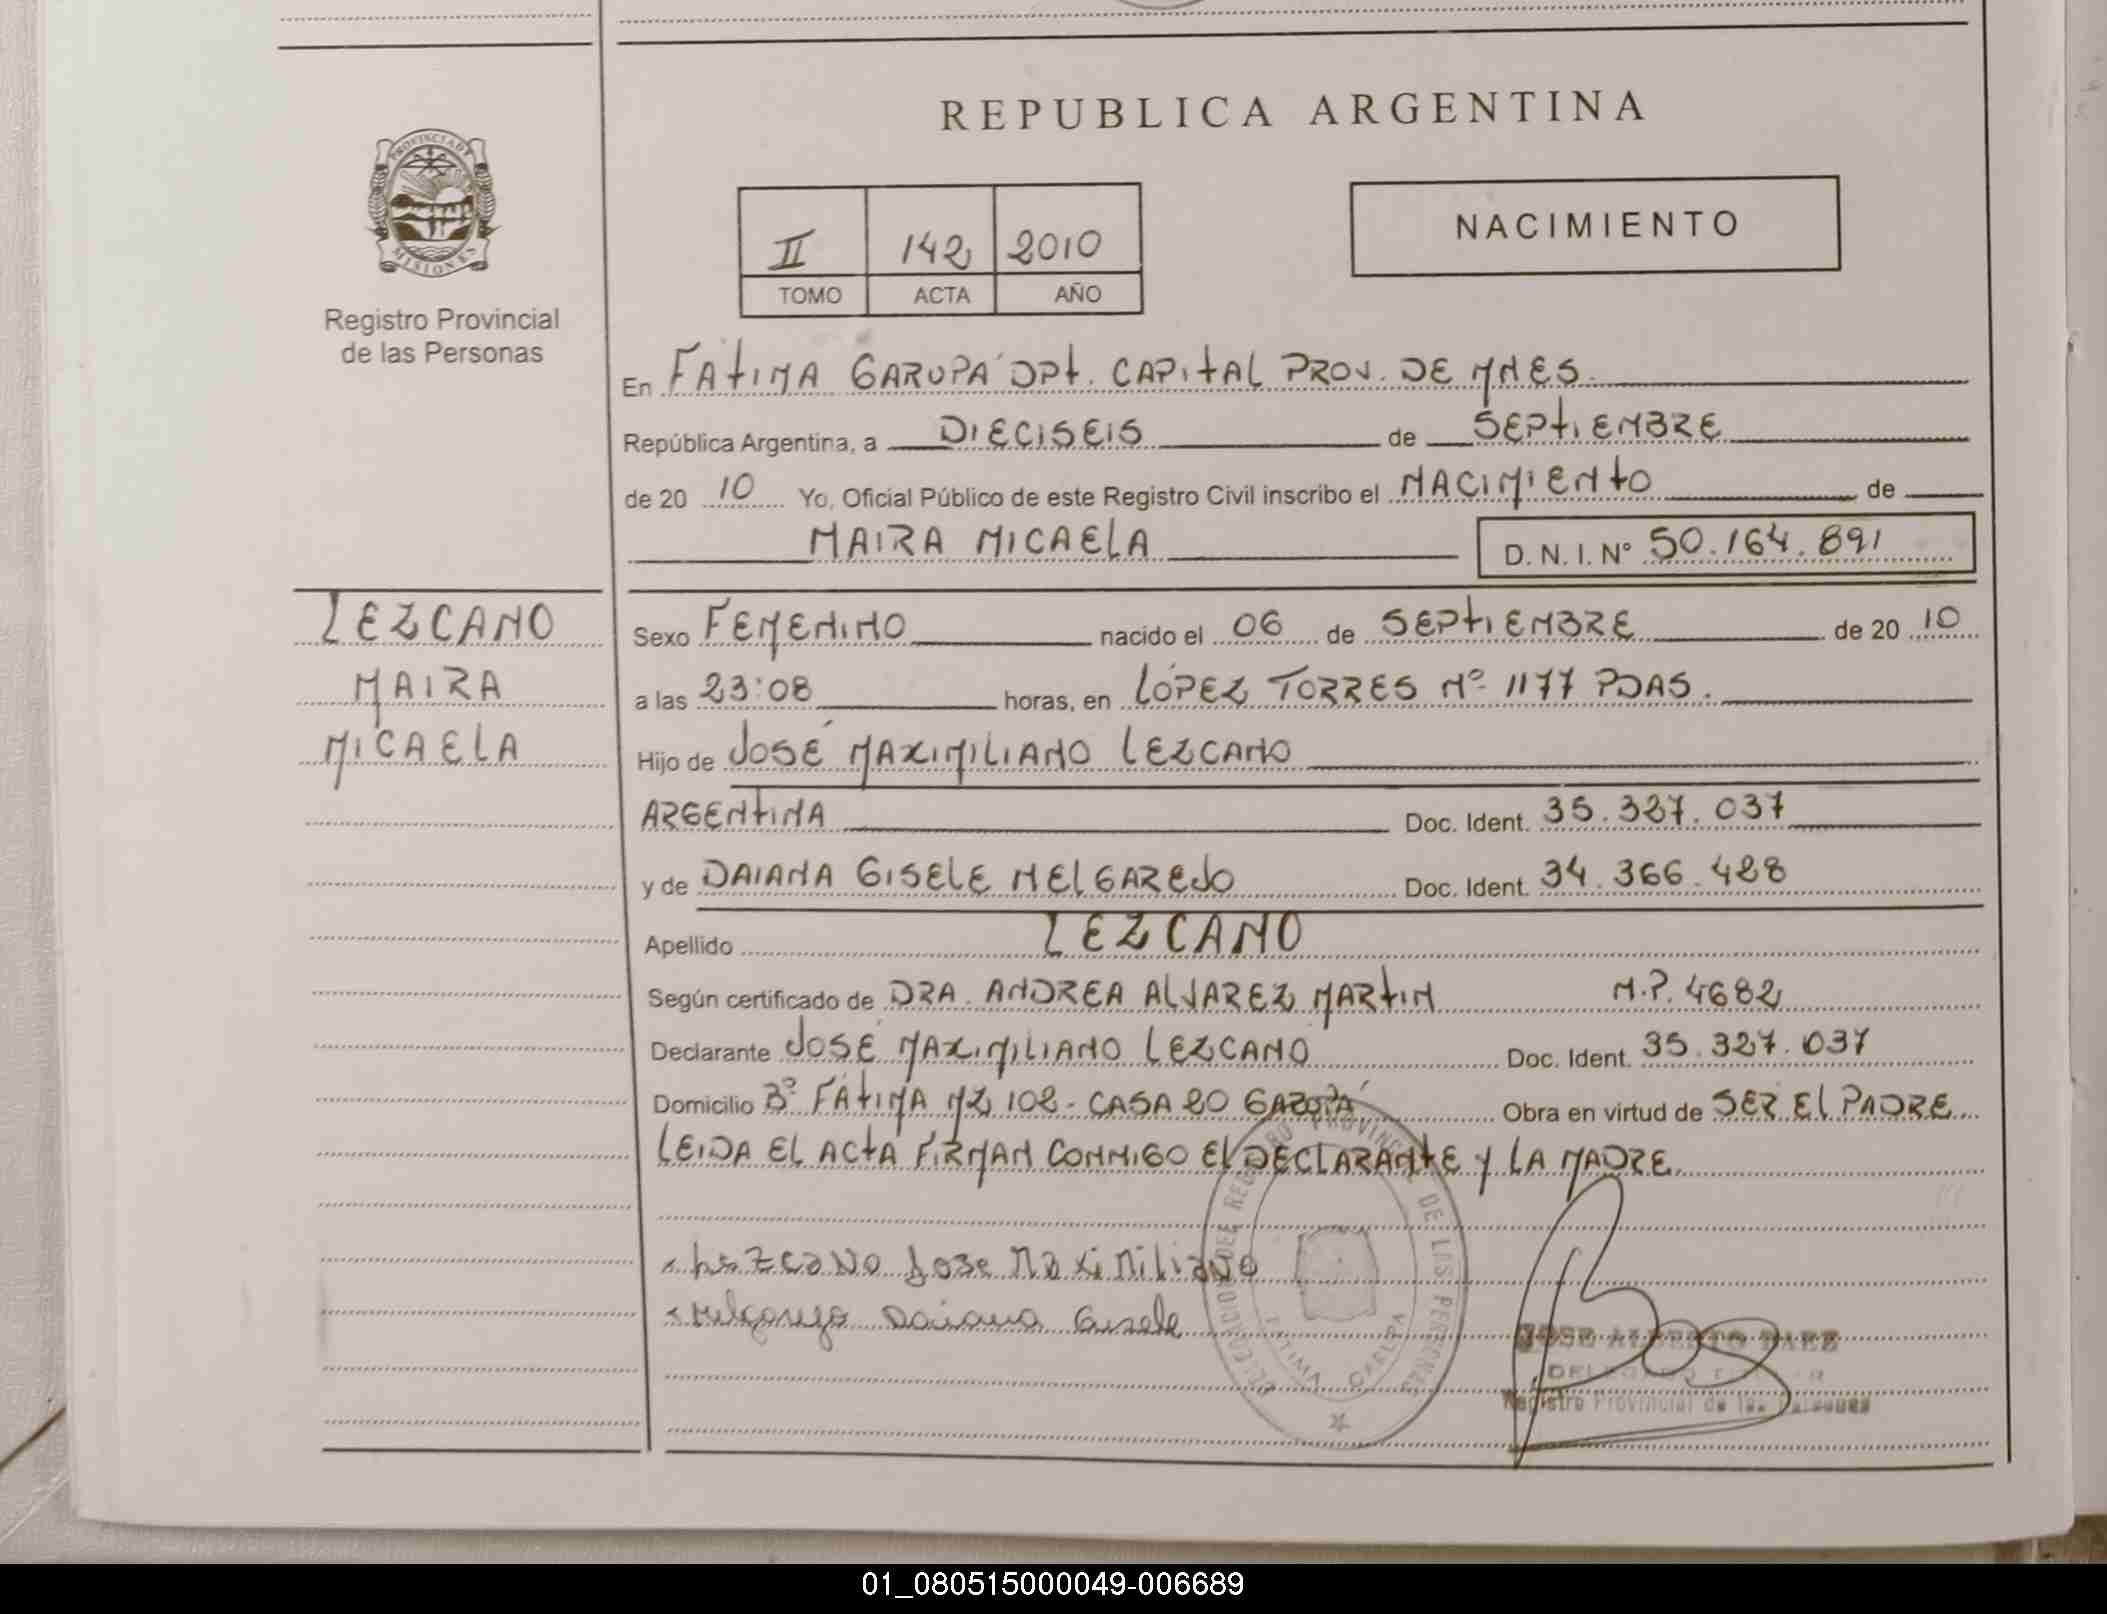 REPUBLICA ARGENTINA
PROVINCIA DE
MISIONES
Registro Provincial
de las Personas
II 142 2010
TOMO ACTA AÑO
NACIMIENTO
En FÁTIMA GARUPÁ DPt. CAPITAL PROV. DE MNES.
República Argentina, a DIECISEIS de SEPTIEMBRE
de 20 10 Yo, Oficial Público de este Registro Civil inscribo el NACIMIENTO de
MAIRA MICAELA D. N. I. N° 50.164.891
LEZCANO
MAIRA
MICAELA
Sexo FEMENINO nacido el 06 de SEPTIEMBRE de 20 10
a las 23:08 horas, en LÓPEZ TORRES Nº 1177 PDAS.
Hijo de JOSÉ MAXIMILIANO LEZCANO
ARGENTINA Doc. Ident. 35.327.037
y de DAIANA GISELE MELGAREJO Doc. Ident. 34.366.428
Apellido LEZCANO
Según certificado de DRA. ANDREA ALVAREZ MARTIN M.P. 4682
Declarante JOSÉ MAXIMILIANO LEZCANO Doc. Ident. 35.327.037
Domicilio Bº FÁTIMA MZ 102 - CASA 20 GARUPÁ Obra en virtud de SER EL PADRE
LEIDA EL ACTA FIRMAN CONMIGO El DECLARANTE Y LA MADRE
Lezcano Jose Maximiliano
Melgarejo Daiana Gisele
DELEGACION DEL REGISTRO PROVINCIAL DE LAS PERSONAS
FATIMA GARUPA
JOSE ALBERTO PAEZ
Registro Provincial de las Personas
01_080515000049-006689